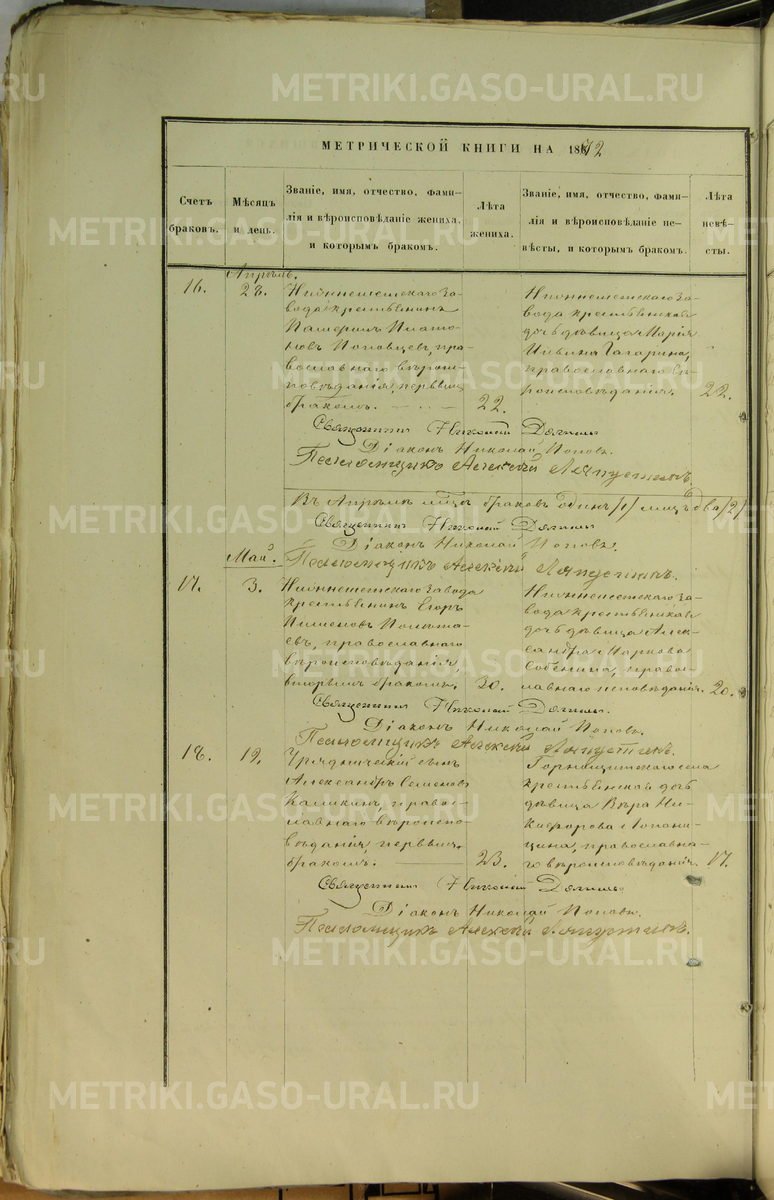 METRIKI.GASO-URAL.RU
МЕТРИЧЕСКОЙ КНИГИ НА 1872
Счетъ браковъ.
Мѣсяцъ и день.
Званіе, имя, отчество, фами-
лія и вѣроисповѣданіе жениха,
и которымъ бракомъ.
Лѣта
жениха.
Званіе, имя, отчество, фами-
лія и вѣроисповѣданіе не-
вѣсты, и которымъ бракомъ.
Лѣта
невѣ-
сты.
Апрѣль.
16.
28.
Нижнеисетскаго за-
вода крестьянинъ
Платоновъ Поповцевъ, пра-
вославнаго вѣроис-
повѣданія, первымъ
бракомъ.
22.
Нижнеисетскаго за-
вода крестьянская
дочь дѣвица Марія
Гагарина,
православнаго вѣ-
роисповѣданія.
22.
Священникъ Николай
Діаконъ Николай Поповъ.
Псаломщикъ Алексѣй
Въ Апрѣлѣ мѣсц. браковъ одинъ /1/ лицъ два /2/
Священникъ Николай
Діаконъ Николай Поповъ.
Май.
Псаломщикъ Алексѣй
17.
3.
Нижнеисетскаго завода
крестьянинъ Егоръ
православнаго
вѣроисповѣданія,
вторымъ бракомъ.
30.
Нижнеисетскаго за-
вода крестьянская
дочь дѣвица Алек-
сандра Маркова
право-
славнаго исповѣданія.
20.
Священникъ Николай
Діаконъ Николай Поповъ.
Псаломщикъ Алексѣй
18.
19.
сынъ
Александръ Семеновъ
Каликинъ, право-
славнаго вѣроиспо-
вѣданія, первымъ
бракомъ.
23.
Горнощитскаго села
крестьянская дочь
дѣвица Вѣра Ни-
кифорова
православна-
го вѣроисповѣданія.
17.
Священникъ Николай
Діаконъ Николай Поповъ.
Псаломщикъ Алексѣй